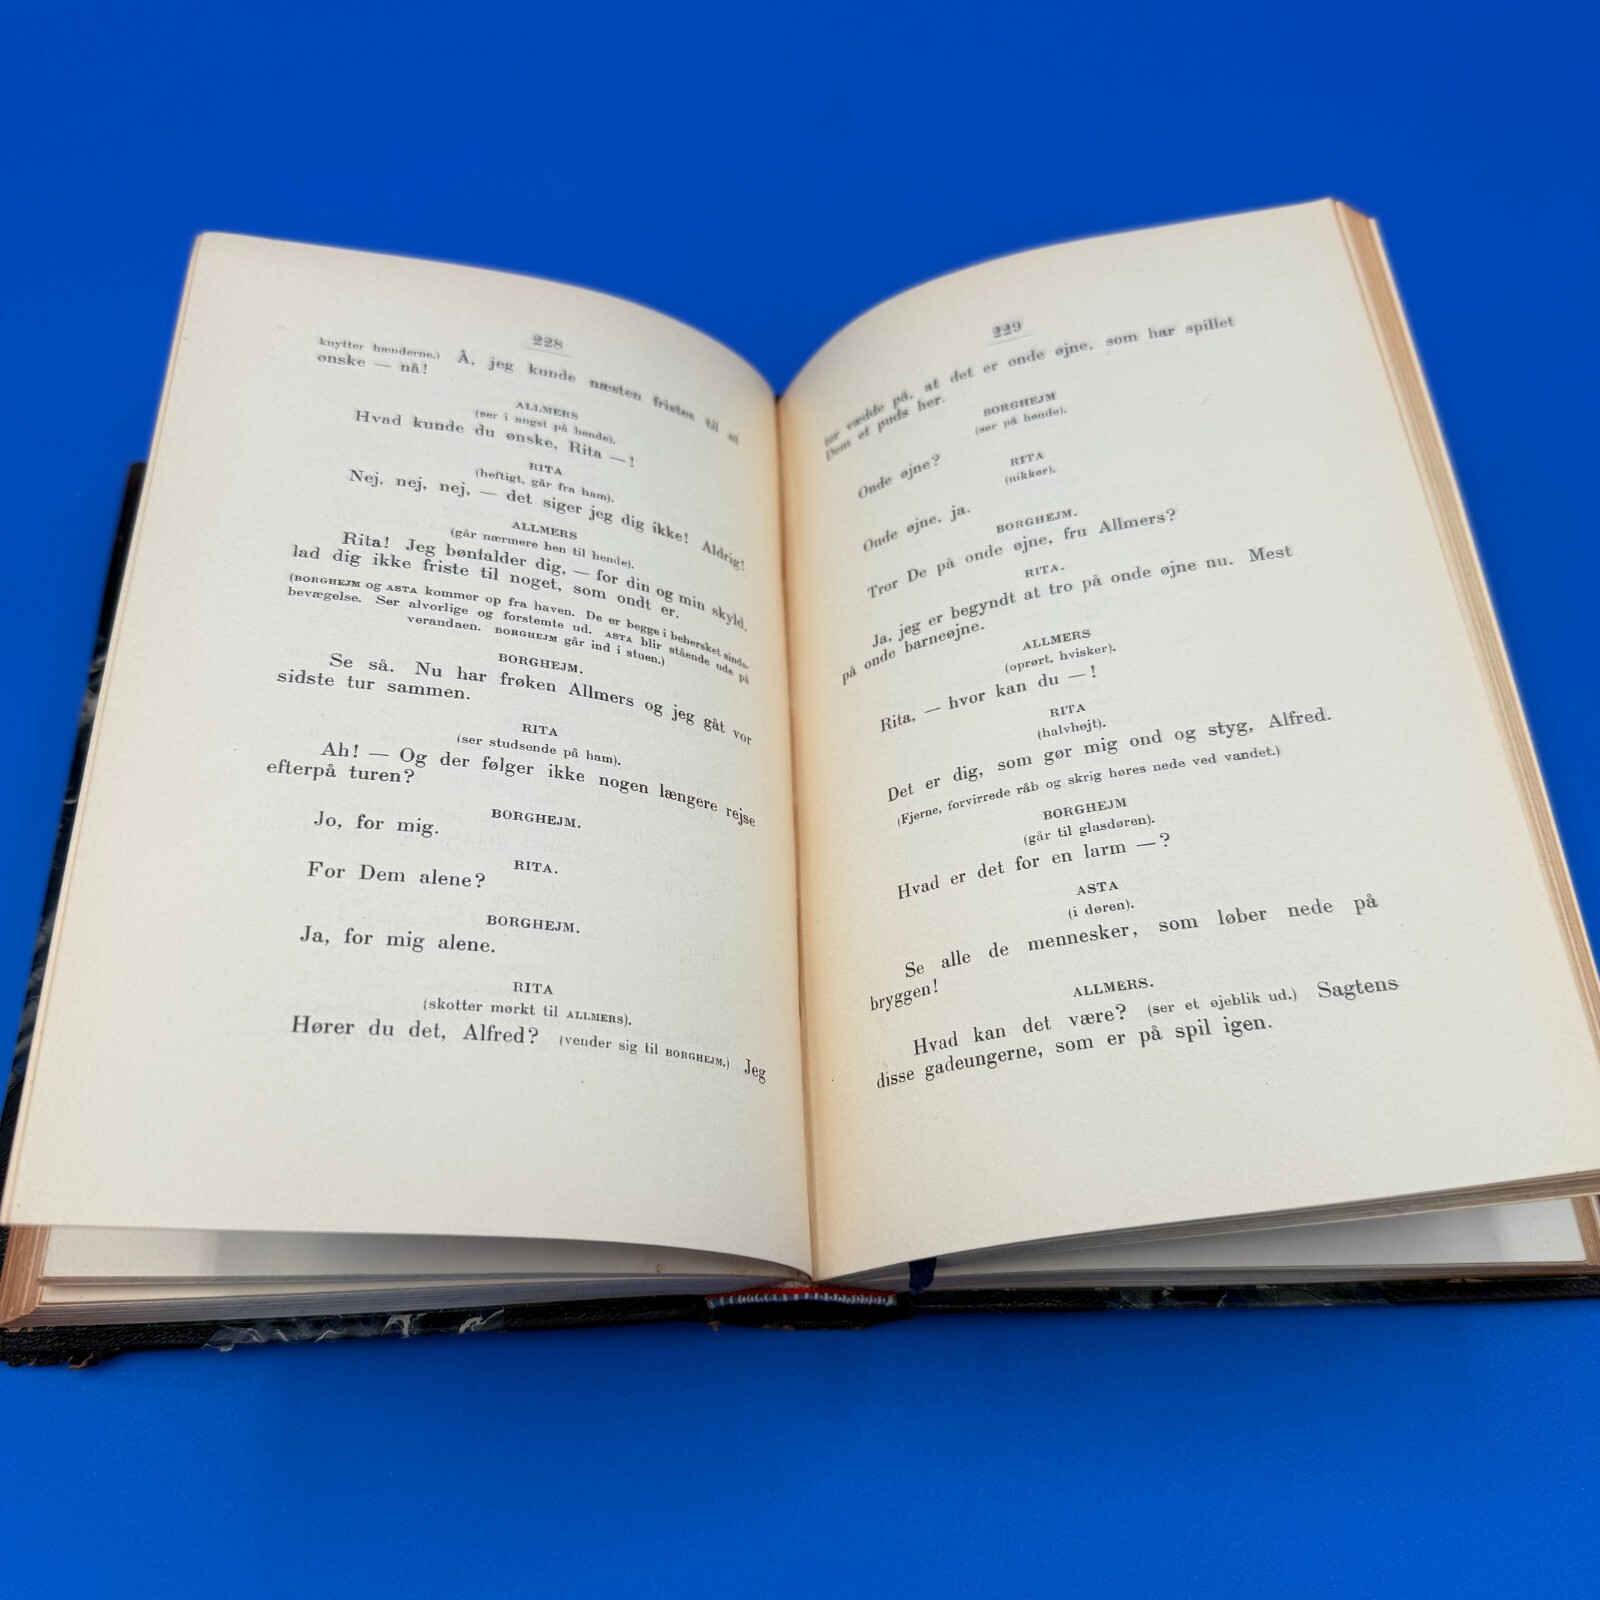 228
knytter hænderne.) Å, jeg kunde næsten fristes til at
ønske — nå!
ALLMERS
(ser i angst på hende).
Hvad kunde du ønske, Rita — !
RITA
(heftigt, går fra ham).
Nej, nej, nej, — det siger jeg dig ikke! Aldrig!
ALLMERS
(går nærmere hen til hende).
Rita! Jeg bønfalder dig, — for din og min skyld,
lad dig ikke friste til noget, som ondt er.
(BORGHEJM og ASTA kommer op fra haven. De er begge i behersket sinds-
bevægelse. Ser alvorlige og forstemte ud. ASTA blir stående ude på
verandaen. BORGHEJM går ind i stuen.)
BORGHEJM.
Se så. Nu har frøken Allmers og jeg gåt vor
sidste tur sammen.
RITA
(ser studsende på ham).
Ah! — Og der følger ikke nogen længere rejse
efterpå turen?
BORGHEJM.
Jo, for mig.
RITA.
For Dem alene?
BORGHEJM.
Ja, for mig alene.
RITA
(skotter mørkt til ALLMERS).
Hører du det, Alfred? (vender sig til BORGHEJM.) Jeg
229
tør vædde på, at det er onde øjne, som har spillet
Dem et puds her.
BORGHEJM
(ser på hende).
Onde øjne?
RITA
(nikker).
Onde øjne, ja.
BORGHEJM.
Tror De på onde øjne, fru Allmers?
RITA.
Ja, jeg er begyndt at tro på onde øjne nu. Mest
på onde barneøjne.
ALLMERS
(oprørt, hvisker).
Rita, — hvor kan du — !
RITA
(halvhøjt).
Det er dig, som gør mig ond og styg, Alfred.
(Fjerne, forvirrede råb og skrig høres nede ved vandet.)
BORGHEJM
(går til glasdøren).
Hvad er det for en larm — ?
ASTA
(i døren).
Se alle de mennesker, som løber nede på
bryggen!
ALLMERS.
Hvad kan det være? (ser et øjeblik ud.) Sagtens
disse gadeungerne, som er på spil igen.